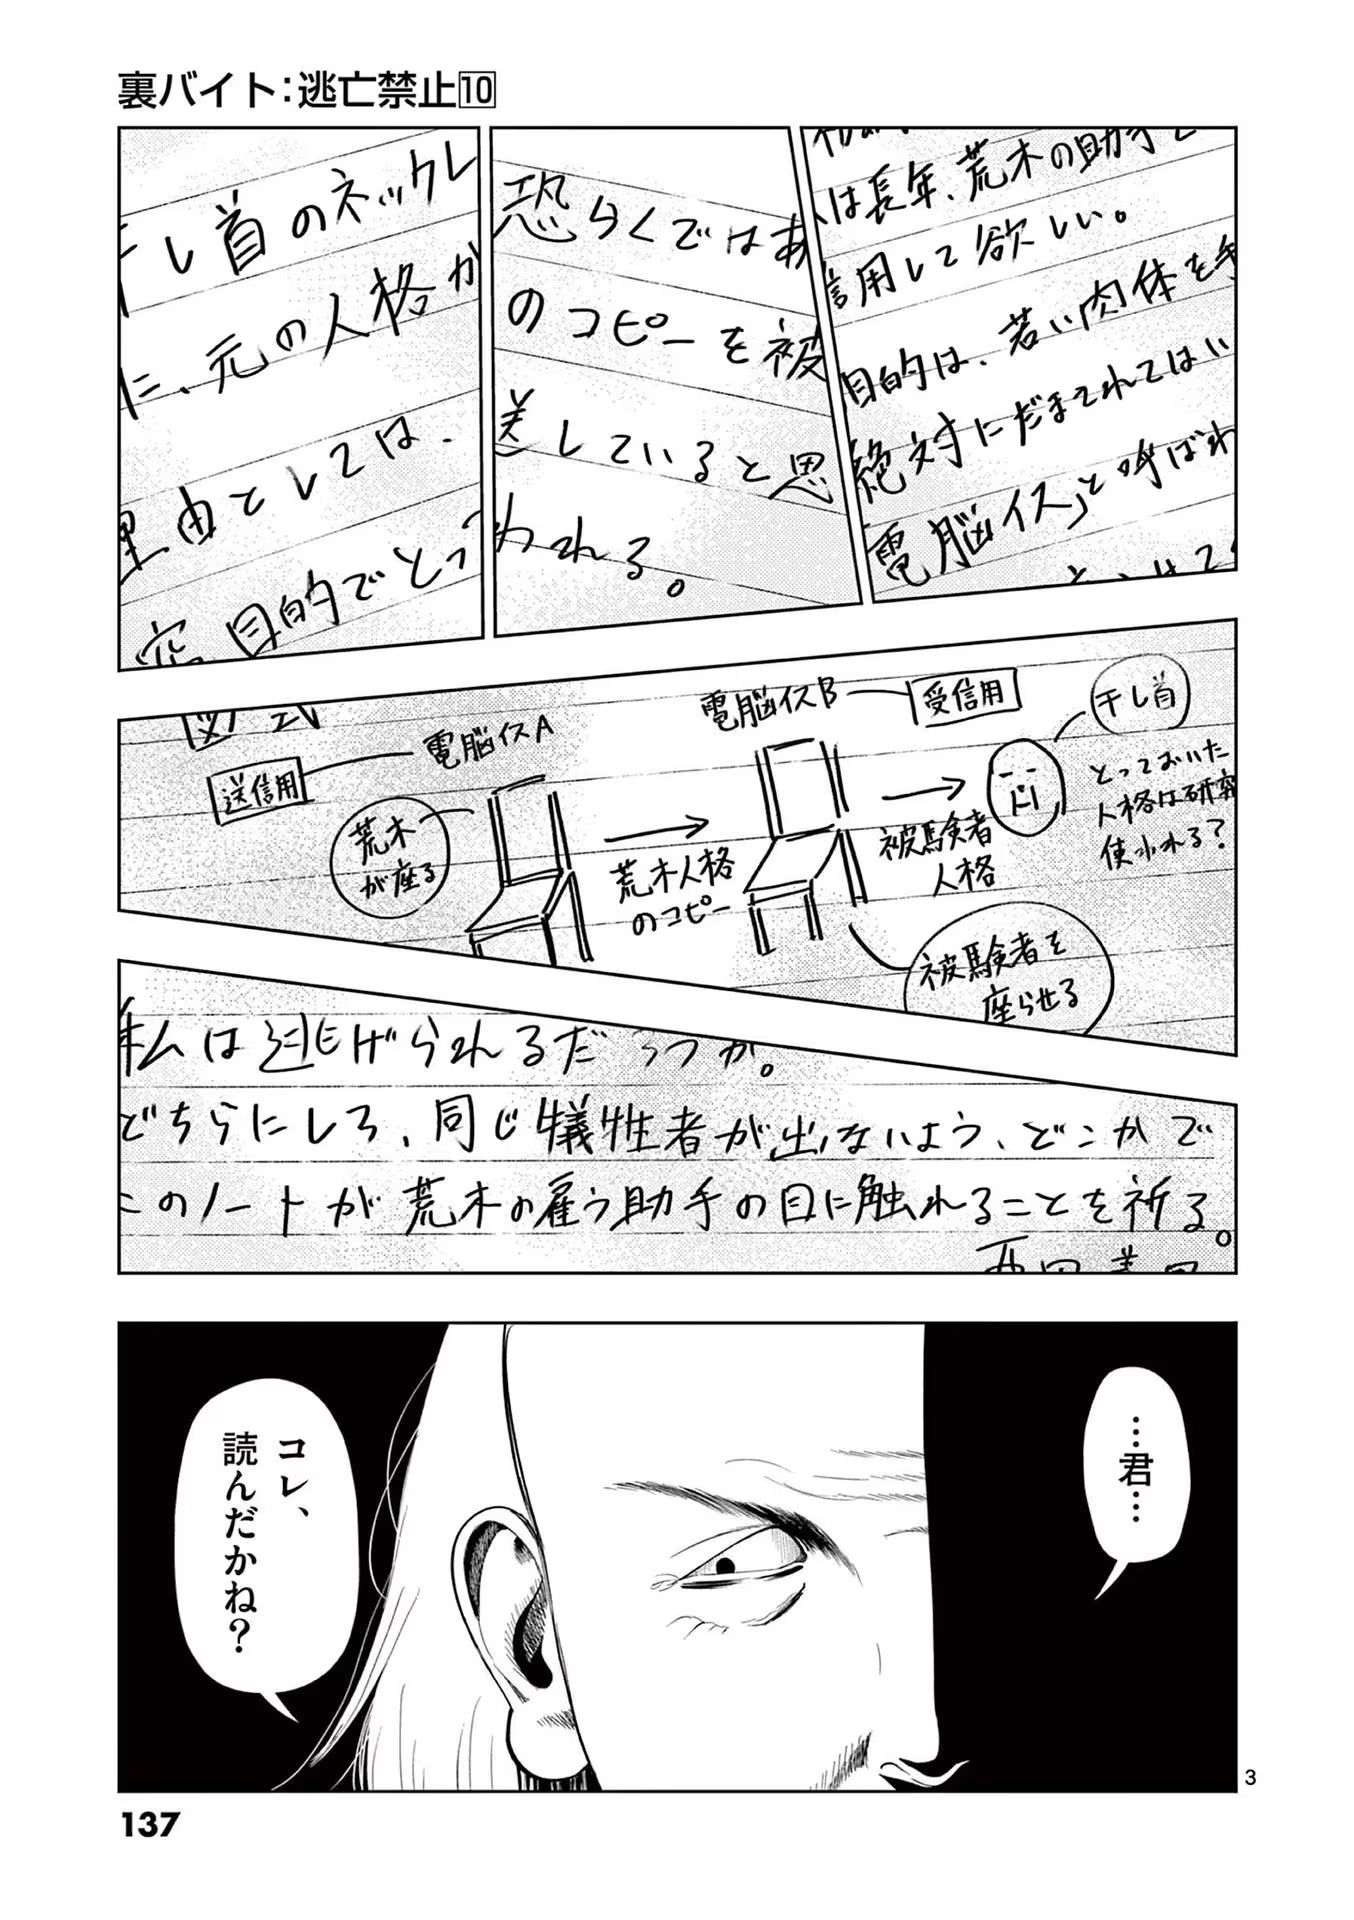 裏バイト：逃亡禁止10
は長年、荒木の助手と
信用して欲しい。
目的は、若い肉体を手
絶対にだまされてはい
電脳イス」と呼ばれ
恐らくではあ
のコピーを被
差していると思
われる。
干し首のネックレ
に、元の人格が
理由としては、
究目的でとっ
図式
電脳イスA
送信用
荒木
が座る
荒木人格
のコピー
電脳イスB
受信用
被験者を
座らせる
被験者
人格
干し首
とっておいた
人格は研究
使われる？
私は逃げられるだろうか。
どちらにしろ、同じ犠牲者が出ないよう、どこかで
このノートが荒木の雇う助手の目に触れることを祈る。
…君…
コレ、
読んだかね？
3
137